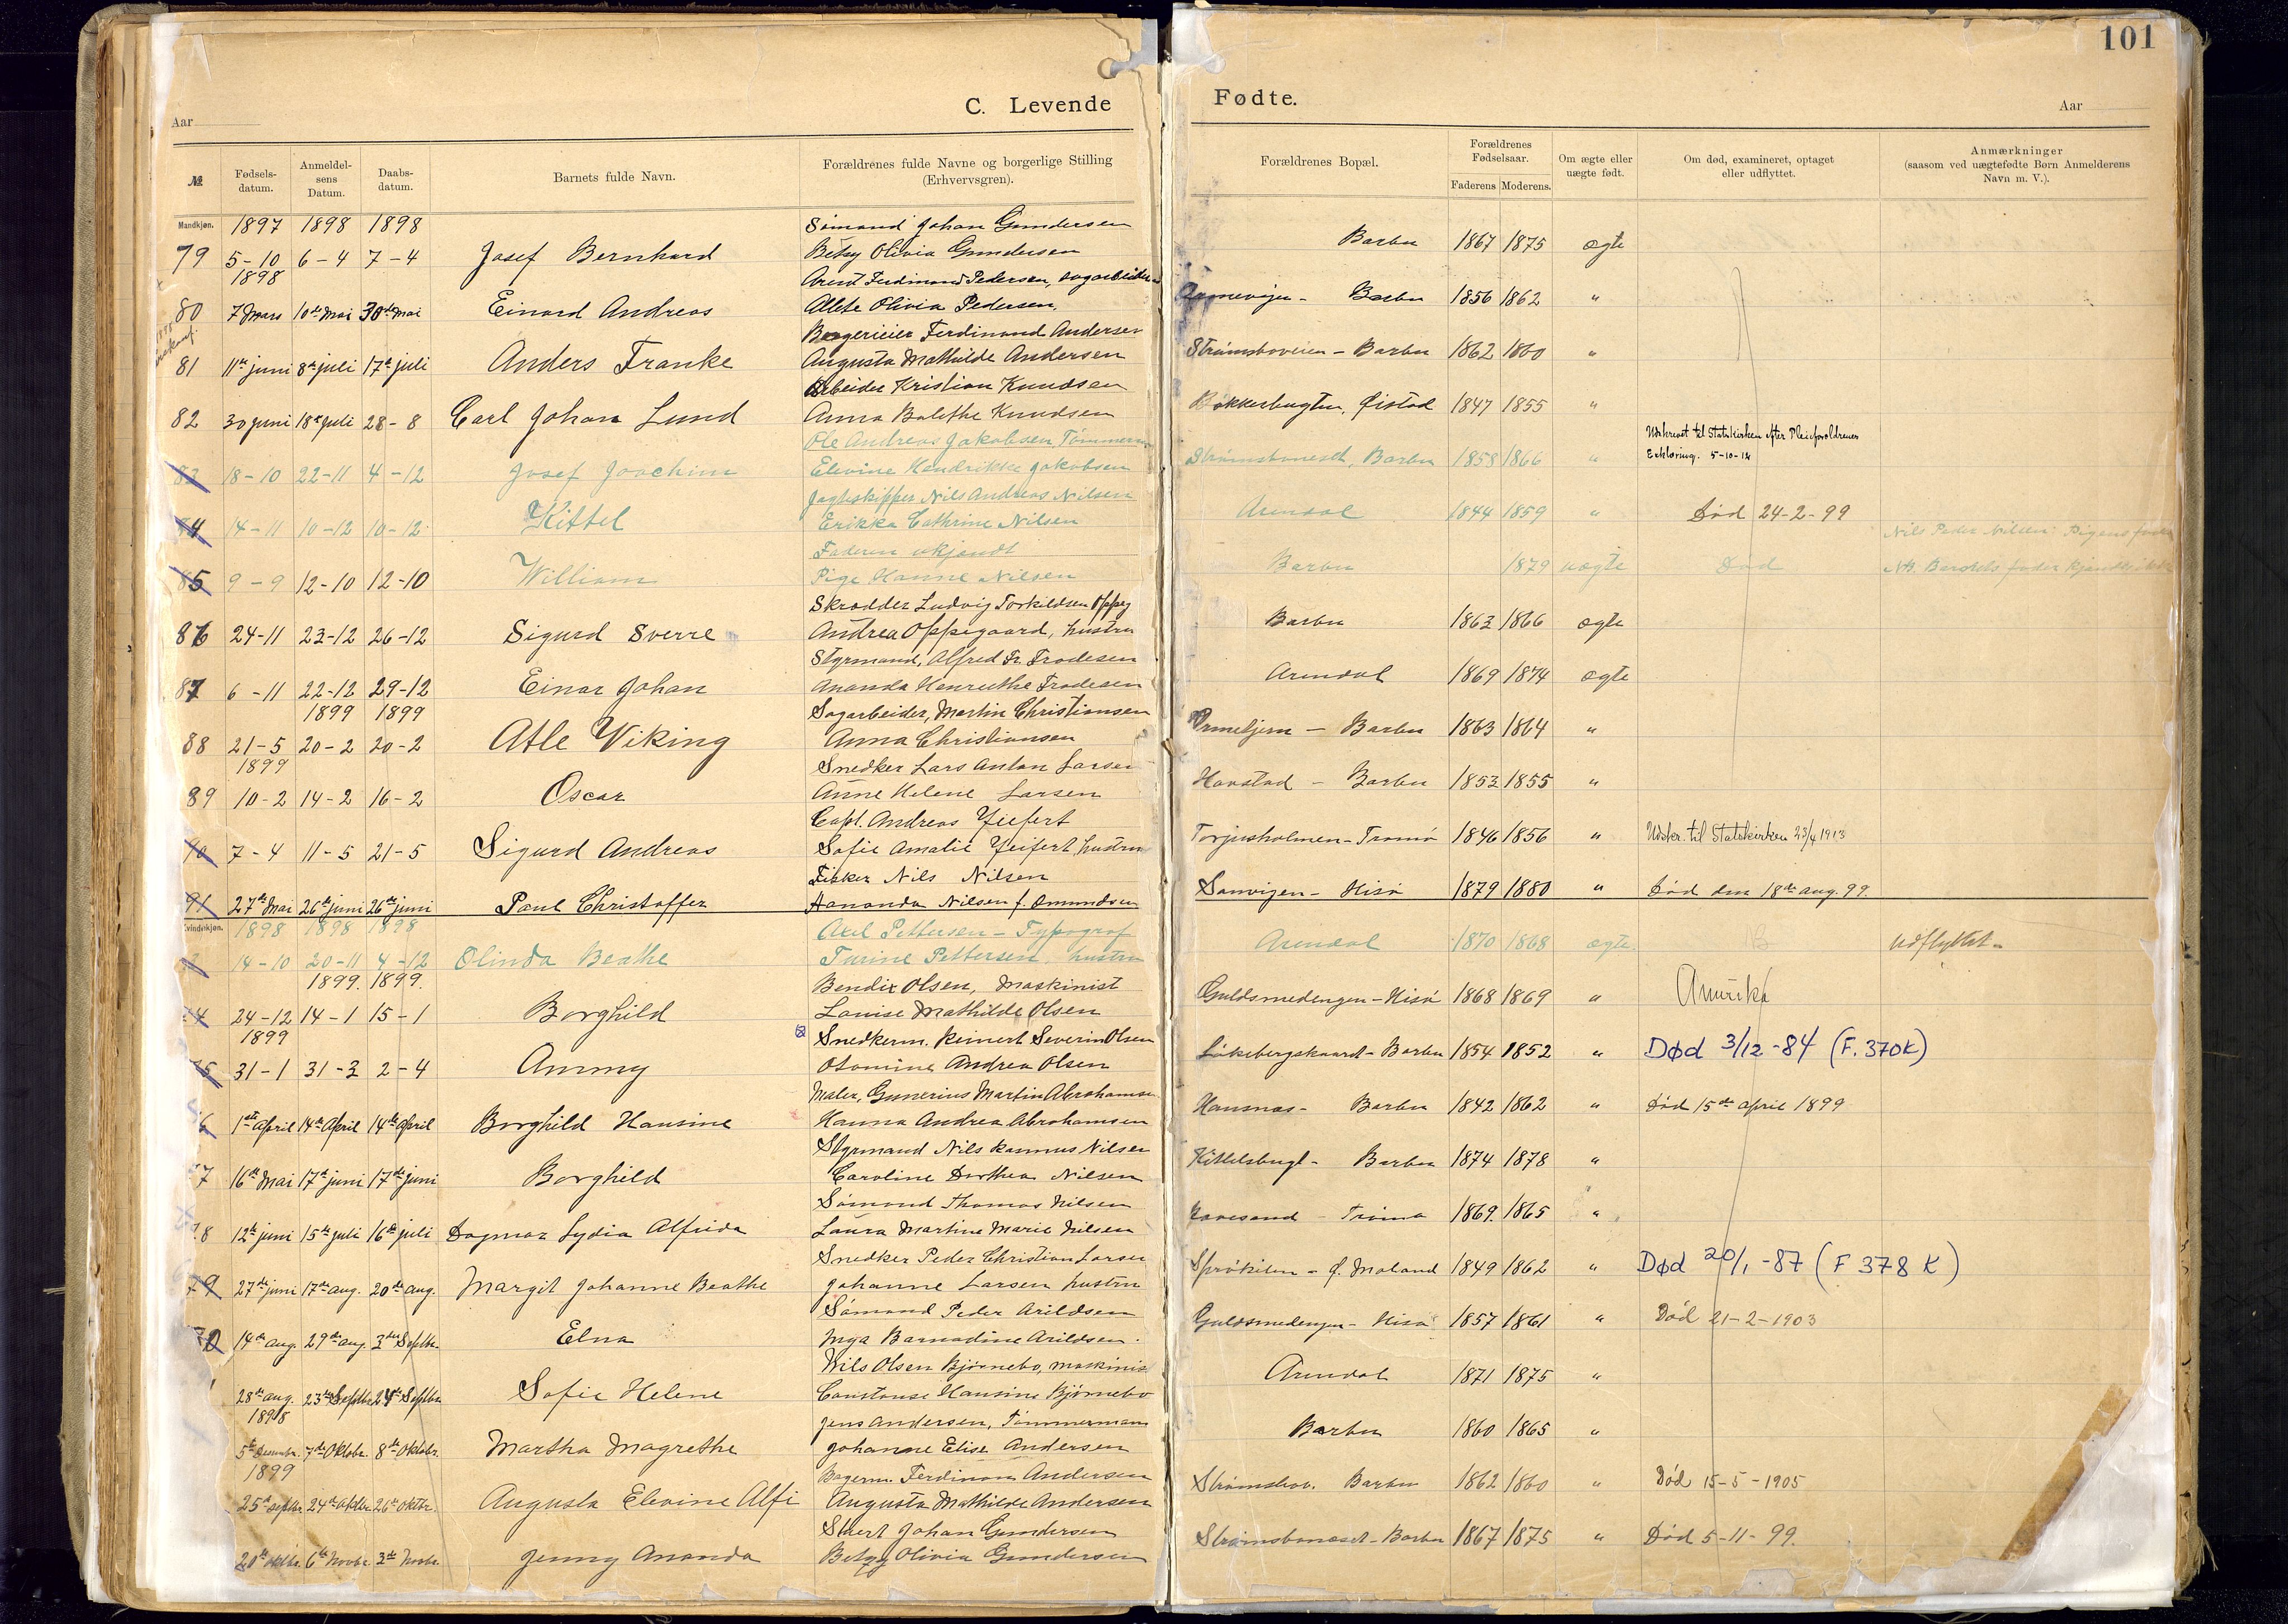 101
C. Levende Fødte.
Aar Aar
№ Fødsels-datum. Anmeldel-sens Datum. Daabs-datum. Barnets fulde Navn. Forældrenes fulde Navne og borgerlige Stilling (Erhvervsgren). Forældrenes Bopæl. Forældrenes Fødselsaar. Faderens Moderens. Om ægte eller uægte født. Om død, examineret, optaget eller udflyttet. Anmærkninger (saasom ved uægtefødte Børn Anmelderens Navn m. V.).
Mandkjøn. 1897 1898 1898 Sømand Johan Gundersen
79 5-10 6-4 7-4 Josef Bernhard Betzy Olivia Gundersen Barbu 1867 1875 ægte
1898 Arent Ferdinand Pedersen, sagarbeider
80 7 Mars 10de Mai 30de Mai Einard Andreas Allete Olivia Pedersen. Barbu 1856 1862 "
Bagerieier Ferdinand Andersen
81 11te juni 8de juli 17de juli Anders Franke Augusta Mathilde Andersen Strømsboveien - Barbu 1862 1860 "
Arbeider Kristian Knudsen
82 30 juni 18de juli 28-8 Carl Johan Lund Anna Bolethe Knudsen Bakkebugten, Øistad 1847 1855 "
Ole Andreas Jakobsen Tømmerm Udskrevet til Statskirken efter Pleieforældrenes
83 18-10 22-11 4-12 Josef Joachim Elevine Hendrikke Jakobsen Strømsboneset, Barbu 1858 1866 " Erklæring. 5-10-12
Jagtskipper Nils Andreas Nilsen
84 14-11 10-12 10-12 Kittel Erikka Cathrine Nilsen Arendal 1844 1859 " Død 24-2-99
Faderen ukjendt Nils Peder Nilsen Pigens fader
85 9-9 12-10 12-10 William Pige Hanne Nilsen Barbu 1879 uægte Død Barnets fader
Skrædder Ludvig Torkildsen Oppeg
86 24-11 23-12 26-12 Sigurd Sverre Andrea Oppegaard, hustru Barbu 1863 1866 ægte
Styrmand, Alfred Fr. Frodesen
87 6-11 22-12 29-12 Einar Johan Ananda Henriethe Frodesen Arendal 1869 1874 ægte
1899 1899 Sagarbeider, Martin Christiansen
88 21-5 20-2 20-2 Atle Viking Anna Christiansen Barbu 1863 1864 "
1899 Snedker Lars Anton Larsen
89 10-2 14-2 16-2 Oscar Anne Helene Larsen Havstad - Barbu 1853 1855 "
Capt. Andreas Feifert
90 7-4 11-5 21-5 Sigurd Andreas Sofie Amalie Feifert, hustru Torjusholmen - Tromø 1846 1856 " Udskr. til Statskirken 23/4 1913
Fisker Nils Nilsen
91 27de Mai 26de juni 26de juni Paul Christoffer Aananda Nilsen f. Omundsen Sanvigen - Hisø 1879 1880 " Død den 18de aug. 99.
Kvindekjøn. 1898 1898 1898 Axel Pettersen - Typograf
14-10 20-11 4-12 Olinda Beathe Turine Pettersen, hustru Arendal 1870 1868 ægte. udflyttet
1899. 1899. Bendix Olsen, Maskinist
24-12 14-1 15-1 Borghild Louise Mathilde Olsen Guldsmedengen - Hisø 1868 1869 " Amerika
1899 Snedkerm. Reinert Severin Olsen
75 31-1 31-3 2-4 Ammy Otomine Andrea Olsen Barbu 1854 1852 " Død 3/12-84 (F. 370K)
Maler, Gunerius Martin Abrahamsen
6 1ste April 14de April 14de April Borghild Hansine Hanna Andrea Abrahamsen Hansnæs - Barbu 1842 1862 " Død 15de April 1899
Styrmand Nils Rasmus Nilsen
7 16de Mai 17de juni 17de juni Borghild Caroline Dorthea Nilsen Kittelsbugt - Barbu 1874 1878 "
Sømand Thomas Nilsen
78 12te juni 15de juli 16de juli Dagmar Lydia Alfrida Laura Martine Marie Nilsen Tromø 1869. 1865 "
Snedker Peder Christian Larsen
79 27de juni 17de aug. 20de aug. Margit Johanne Beathe Johanne Larsen hustru Sprøkilen - Ø. Moland 1849 1862 " Død 20/1-87 (F 378 K)
Sømand Peder Arildsen
14de aug. 29de aug. 3die Septbr. Elna Inga Barnadine Arildsen. Guldsmedengen - Hisø 1857 1861 " Død 21-2-1903
Nils Olsen Bjørnebo, maskinis
28de aug. 23de Septbr 24de Septbr Sofie Helene Constanse Hansine Bjørnebo Arendal 1871 1875 "
1898 Jens Andersen, Tømmermann
5te Desembr. 7de Oktobr. 8de Oktobr. Martha Magrethe Johanne Elise Andersen Barbu 1860 1865 "
1899 Bagerm. Ferdinan Andersen
25de septbr 24de oktbr 26de Oktbr. Augusta Elevine Alfi Augusta Mathilde Andersen Strømsbov. Barbu 1862 1860 " Død 15-5-1905
Stuert Johan Gundersen
20de oktbr. 6te Novbr 3de Novbr. Jenny Ananda Betzy Olivia Gundersen Strømsboneset - Barbu 1867 1875 " Død 5-11-99.